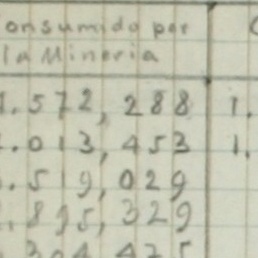 onsumido por
la Mineria
.572,288 1.
.013,453 1.
.519,029
.895,329